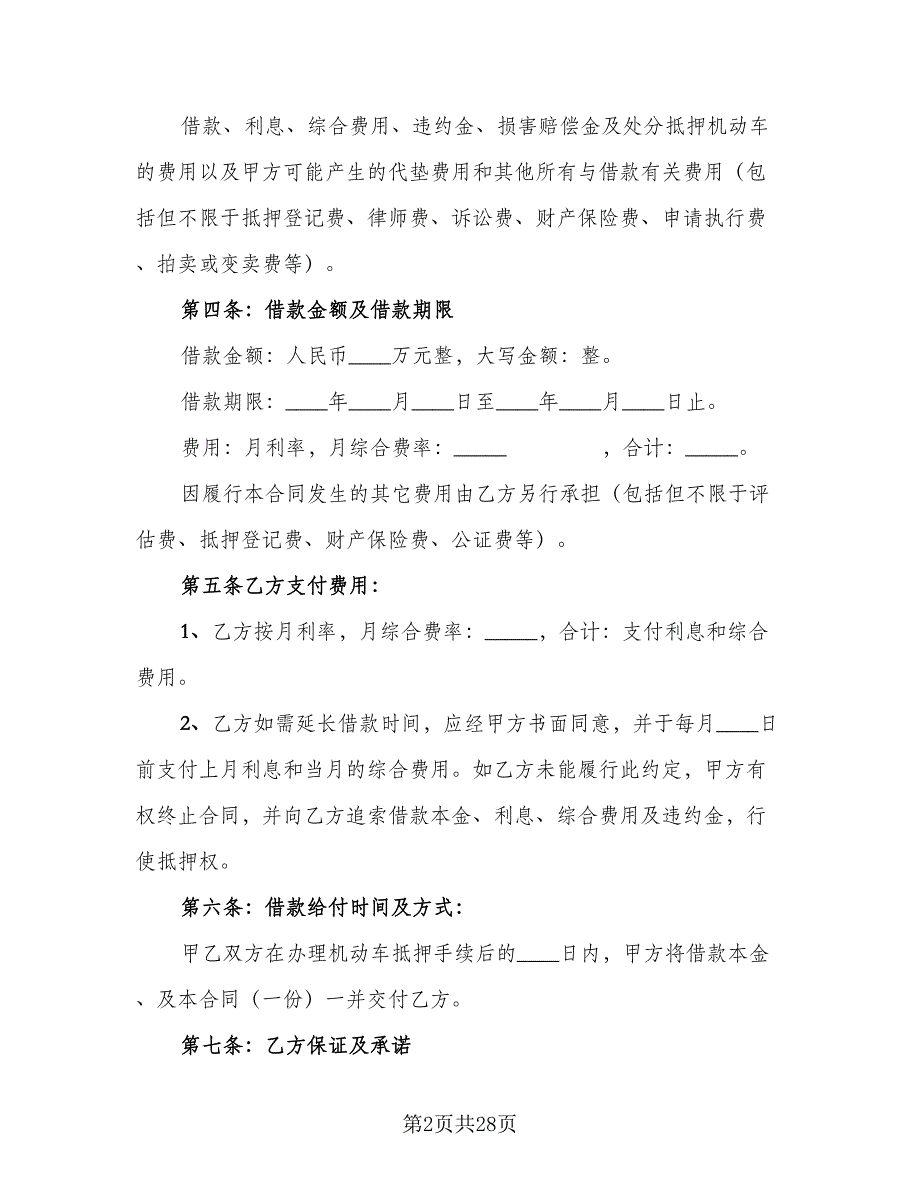 借款、利息、综合费用、违约金、损害赔偿金及处分抵押机动车
的费用以及甲方可能产生的代垫费用和其他所有与借款有关费用（包
括但不限于抵押登记费、律师费、诉讼费、财产保险费、申请执行费
、拍卖或变卖费等）。
第四条：借款金额及借款期限
借款金额：人民币____万元整，大写金额：整。
借款期限：____年____月____日至____年____月____日止。
费用：月利率，月综合费率：_____　　　　，合计：_____。
因履行本合同发生的其它费用由乙方另行承担（包括但不限于评
估费、抵押登记费、财产保险费、公证费等）。
第五条乙方支付费用：
1、乙方按月利率，月综合费率：_____，合计：支付利息和综合
费用。
2、乙方如需延长借款时间，应经甲方书面同意，并于每月____日
前支付上月利息和当月的综合费用。如乙方未能履行此约定，甲方有
权终止合同，并向乙方追索借款本金、利息、综合费用及违约金，行
使抵押权。
第六条：借款给付时间及方式：
甲乙双方在办理机动车抵押手续后的____日内，甲方将借款本金
、及本合同（一份）一并交付乙方。
第七条：乙方保证及承诺
第2页共28页